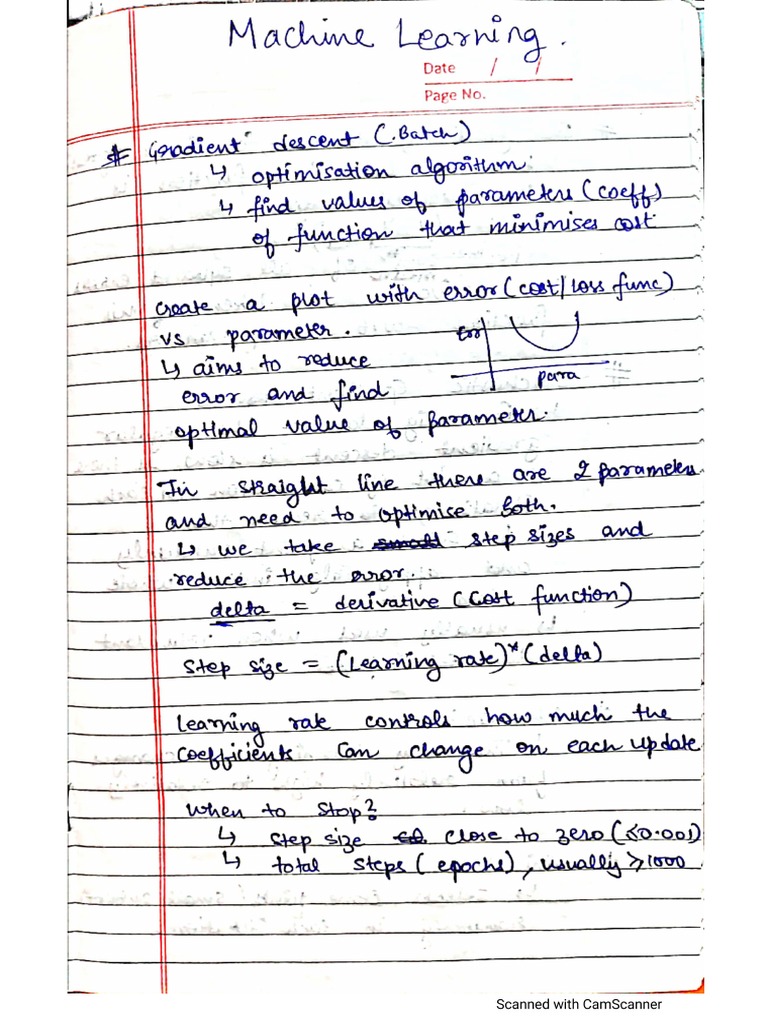 Machine Learning.
Date / /
Page No.
# Gradient descent (Batch)
↳ optimisation algorithm
↳ find values of parameters (coeff)
of function that minimises cost
create a plot with error (cost/loss func)
vs parameter.
Err
para
↳ aims to reduce
error and find
optimal value of parameter.
In straight line there are 2 parameters
and need to optimise both.
↳ we take small step sizes and
reduce the error.
delta = derivative (Cost function)
Step size = (Learning rate)*(delta)
Learning rate controls how much the
coefficients can change on each update
When to stop?
↳ step size close to zero (≤0.001)
↳ total steps (epochs), usually ≥1000
Scanned with CamScanner